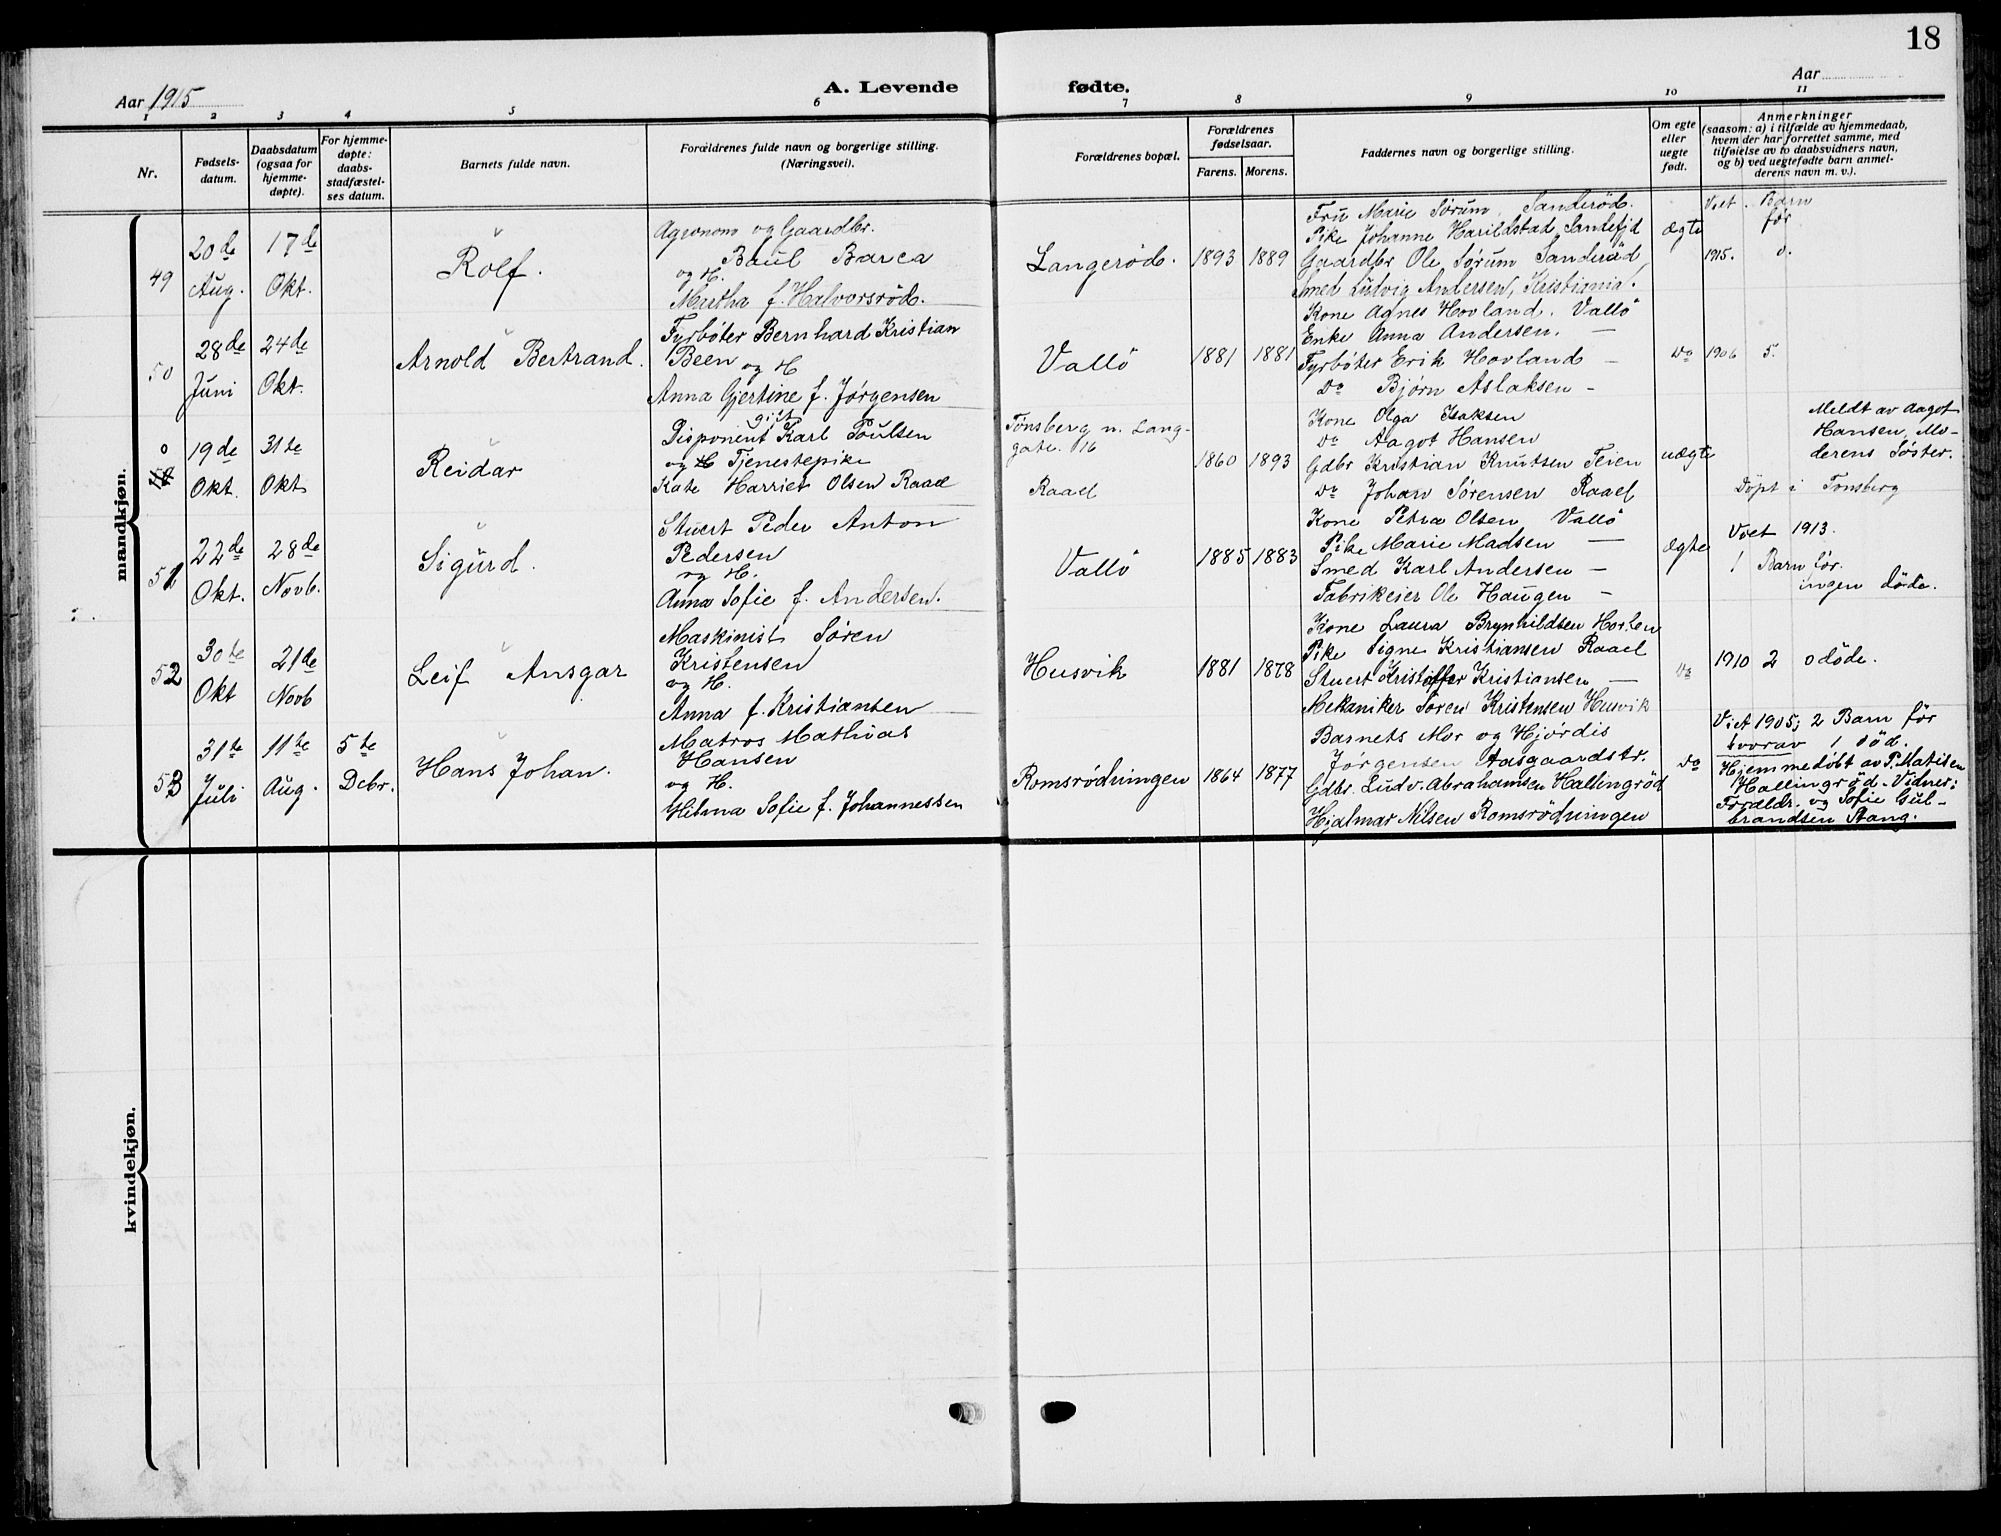 18
Aar 1915
A. Levende fødte.
Aar
1 2 3 4 5 6 7 8 9 10 11
Nr.
Fødsels-
datum.
Daabsdatum
(ogsaa for
hjemme-
døpte).
For hjemme-
døpte:
daabs-
stadfæstel-
ses datum.
Barnets fulde navn.
Forældrenes fulde navn og borgerlige stilling.
(Næringsvei).
Forældrenes bopæl.
Forældrenes
fødselsaar.
Farens. Morens.
Faddernes navn og borgerlige stilling.
Om egte
eller
uegte
født.
Anmerkninger
(saasom: a) i tilfælde av hjemmedaab,
hvem der har forrettet samme, med
tilføielse av to daabsvidners navn,
og b) ved uegtefødte barn anmel-
derens navn m. v.).
mandkjøn.
49
20de
Aug.
17de
Okt.
Rolf.
Agronom og Gaardbr.
Paul Barca
og H.
Martha f. Halvorsrød.
Langerød.
1893 1889
Fru Marie Sørum, Sanderød.
Pike Johanne Harildstad Sandefjd
Gaardbr Ole Sørum Sanderød,
Smed Ludvig Andersen, Kristiania.
ægte
Viet. Barn
før
1915. 0.
50
28de
Juni
24de
Okt.
Arnold Bertrand.
Fyrbøter Bernhard Kristian
Been
og H
Anna Gjertine f. Jørgensen
Vallö
1881 1881
Kone Agnes Hovland. Vallö
Enke Anna Andersen. —
Fyrbøter Erik Hovland —
Do Bjørn Aslaksen -
Do
1906 5.
0
19de
Okt.
31te
Okt
Reidar
gift
Disponent Karl Poulsen
og Tjenestepike
Kate Harriet Olsen Raael
Tønsberg n. Lang-
gate. 116
Raael
1860 1893
Kone Olga Isaksen
Do Aagot Hansen
Gdbr Kristian Knutsen Teien
Do Johan Sørensen Raael
uægte
Meldt av Aagot
Hansen, Mo-
derens Søster.
Døpt i Tønsberg
51
22de
Okt.
28de
Novb.
Sigurd.
Stuert Peder Anton
Pedersen
og H.
Anna Sofie f. Andersen.
Vallö
1885 1883
Kone Petra Olsen Vallö
Pike Marie Madsen —
Smed Karl Andersen —
Fabrikeier Ole Haugen -
ægte
Viet 1913.
1 Barn før.
ingen døde.
52
30te
Okt
21de
Novb
Leif Ansgar
Maskinist Søren
Kristensen
og H.
Anna f. Kristiansen
Husvik
1881 1878
Kone Laura Brynhildsen Horten
Pike Signe Kristiansen Raael
Stuert Kristoffer Kristiansen —
Mekaniker Søren Kristensen Husvik
Do
1910 2 0 døde.
53
31te
Juli
11te
Aug.
5te
Debr.
Hans Johan.
Matros Mathias
Hansen
og H.
Hilma Sofie f. Johannessen
Romsrødningen
1864 1877
Barnets Mor og Hjørdis
Jørgensen Aasgaardstr.
Gdbr. Ludv. Abrahamsen Hallingrød
Hjalmar Nilsen Romsrødningen
Do
Viet 1905; 2 Barn før
hvorav 1 død.
Hjemmedøbt av P. Matisen
Hallingrød. Vidner:
Forældr. og Sofie Gul-
brandsen Stang.
kvindekjøn.